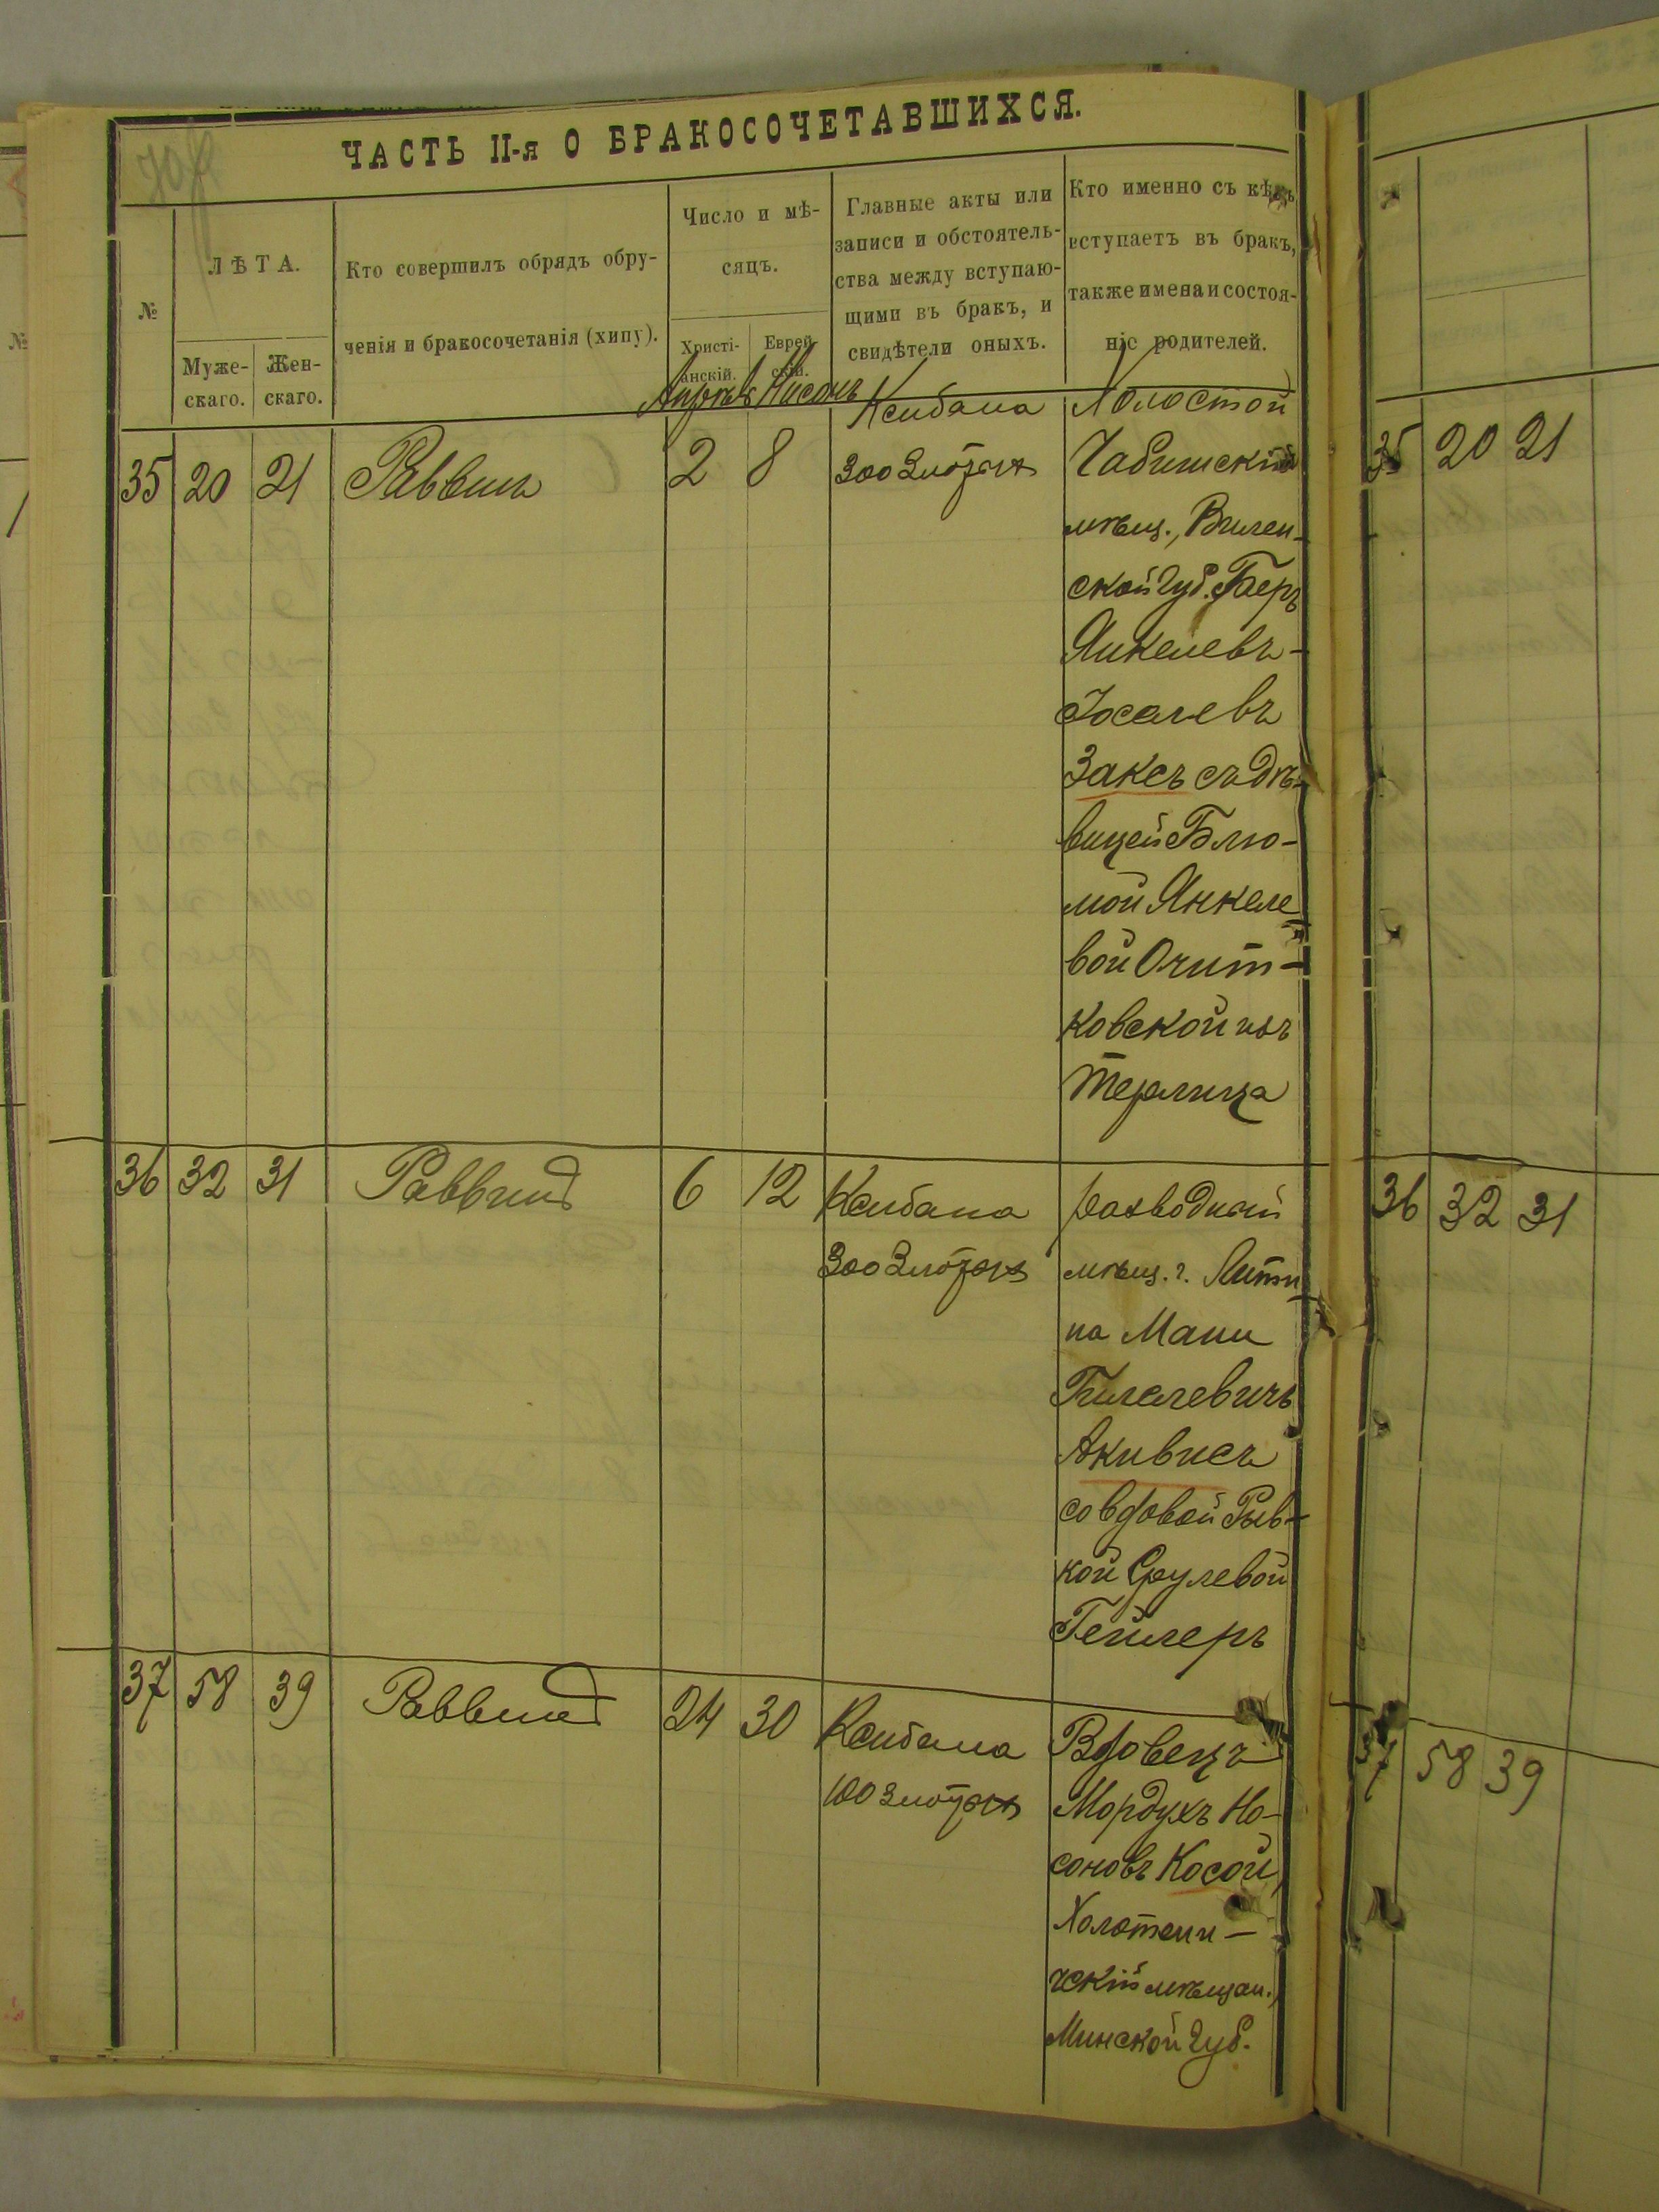 ЧАСТЬ II-я О БРАКОСОЧЕТАВШИХСЯ.
№
ЛѢТА.
Муже-
скаго.
Жен-
скаго.
Кто совершилъ обрядъ обру-
ченія и бракосочетанія (хипу).
Число и мѣ-
сяцъ.
Христі-
анскій.
Еврей-
скій.
Главные акты или
записи и обстоятель-
ства между вступаю-
щими въ бракъ, и
свидѣтели оныхъ.
Кто именно съ кѣмъ
вступаетъ въ бракъ,
также имена и состоя-
ніе родителей.
Апрѣль Нисонъ
35 20 21 Раввинъ 2 8
Ксибана
300 Злотыхъ
Холостой
мѣщ., Вилен-
ской губ. Беръ
Янкелевъ-
Іоселевъ
Заксъ съ дѣ-
вицей Блю-
мой Янкеле
вой
ковской изъ
Терлица
36 32 31 Раввинъ 6 12
Ксибана
300 Злотыхъ
Разводный
мѣщ. г. Лити
на Мани
Гилелевичъ
Акивисъ
со вдовой Рыв-
кой Срулевой
Гейлеръ
37 58 39 Раввинъ 24 30
Ксибана
100 Злотыхъ
Вдовецъ
Мордухъ Но-
соновъ Косой,
Холотени-
ческій мѣщан.,
Минской губ.
35 20 21
36 32 31
37 58 39